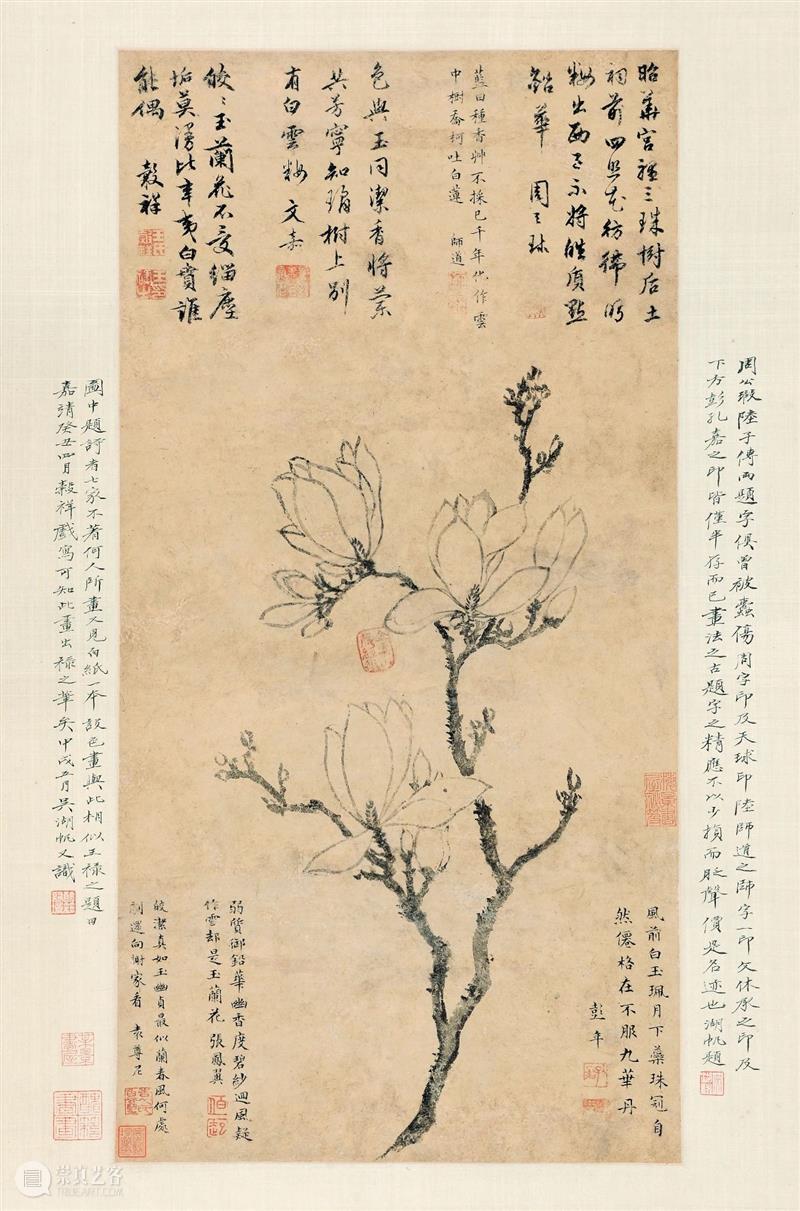 周公瑕陸子傳兩題字俱曾被蠹傷周字印及天球印陸師道之師字一印文休承之印及
下方彭孔嘉之印皆僅半存而已畫法之古題字之精應不以少損而貶聲價是名迹也湖帆題
昭華宮裡三珠樹后土
祠前四照花彷彿
粧出西子不將皓質點
鉛華 周天球
藍田種香艸不採已千年化作雲
中樹喬柯吐白蓮 師道
色與玉同潔香將蘭
共芳寧知瑤樹上別
有白雲粧 文嘉
皎〻玉蘭花不受緇塵
垢莫漫比辛夷白賁誰
能偶 榖祥
風前白玉珮月下蘂珠冠自
然僊格在不服九華丹
彭年
弱質御鉛華幽香度碧紗迴風疑
作雪却是玉蘭花 張鳳翼
皎潔真如玉幽貞最似蘭春風何處
還向謝家看 袁尊尼
圖中題詩者七家不著何人所畫又見白紙一本設色畫與此相似王祿之題曰
嘉靖癸丑四月榖祥戲寫可知此畫出祿之筆矣甲戌五月吳湖帆又識
崇真艺客